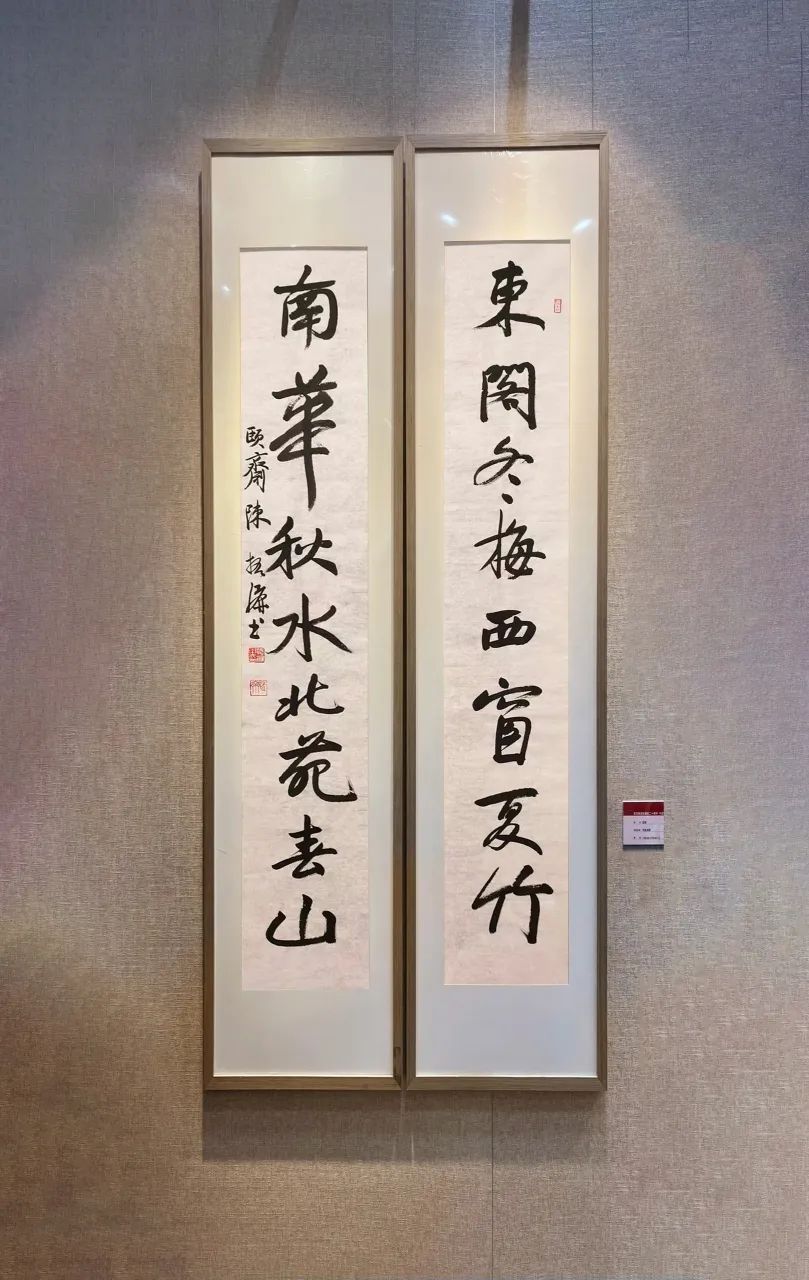 東閣冬梅西窗夏竹
南華秋水北苑春山
頤齋陳 海書